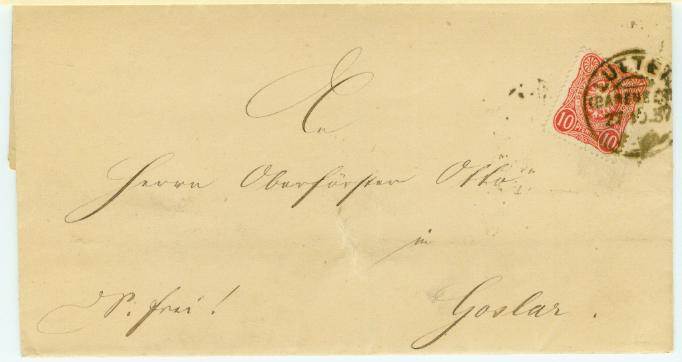 LUTTER
10 10
An
Herrn Oberförster Otto
in
Goslar.
frei!